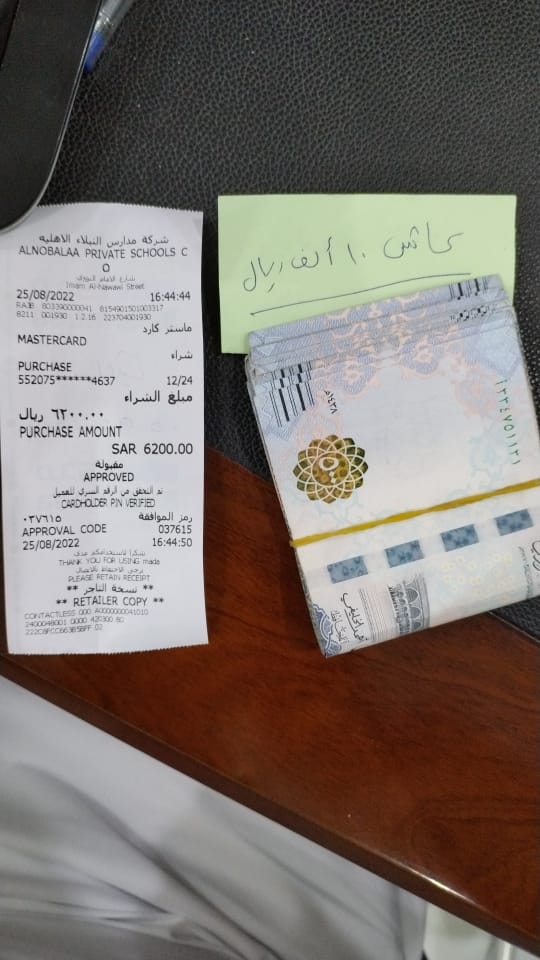 شركة مدارس النبلاء الاهليه
ALNOBALAA PRIVATE SCHOOLS C
O
شارع الامام النووي
Imam Al-Nawawi Street
25/08/2022 16:44:44
RAJB 803390000041 8154901501003317
8211 001930 1.2.16 223704001930
ماستر كارد
MASTERCARD
شراء
PURCHASE
552075******4637 12/24
مبلغ الشراء
٦٢٠٠.٠٠ ريال
PURCHASE AMOUNT
SAR 6200.00
مقبولة
APPROVED
تم التحقق من الرقم السري للعميل
CARDHOLDER PIN VERIFIED
رمز الموافقة ٠٣٧٦١٥
APPROVAL CODE 037615
25/08/2022 16:44:50
شكرا لاستخدامكم مدى
THANK YOU FOR USING mada
يرجى الاحتفاظ بالايصال
PLEASE RETAIN RECEIPT
** نسخة التاجر **
** RETAILER COPY **
CONTACTLESS 000 A0000000041010
2400048001 0000 420300 80
222C8FCC663B5BFF 02
كاش ١٠ ألف ريال
١٤٣٨هـ